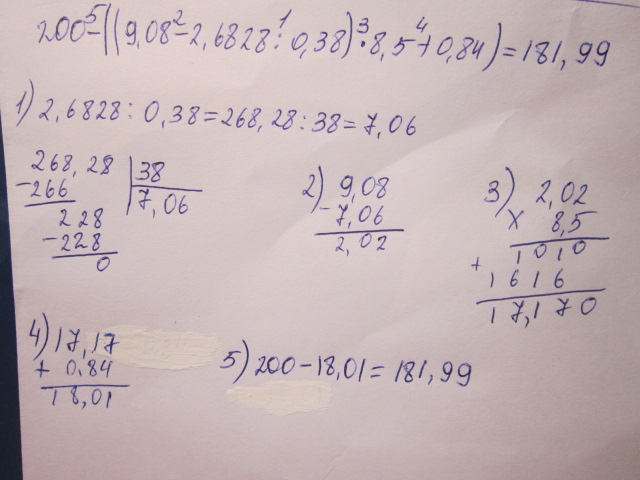 200-((9,08-2,6828:0,38)·8,5+0,84)=181,99
5 2 1 3 4
1) 2,6828:0,38=268,28:38=7,06
268,28 | 38
-266 7,06
228
-228
0
2) 9,08
-7,06
2,02
3) 2,02
x 8,5
1010
+1616
17,170
4) 17,17
+ 0,84
18,01
5) 200-18,01=181,99